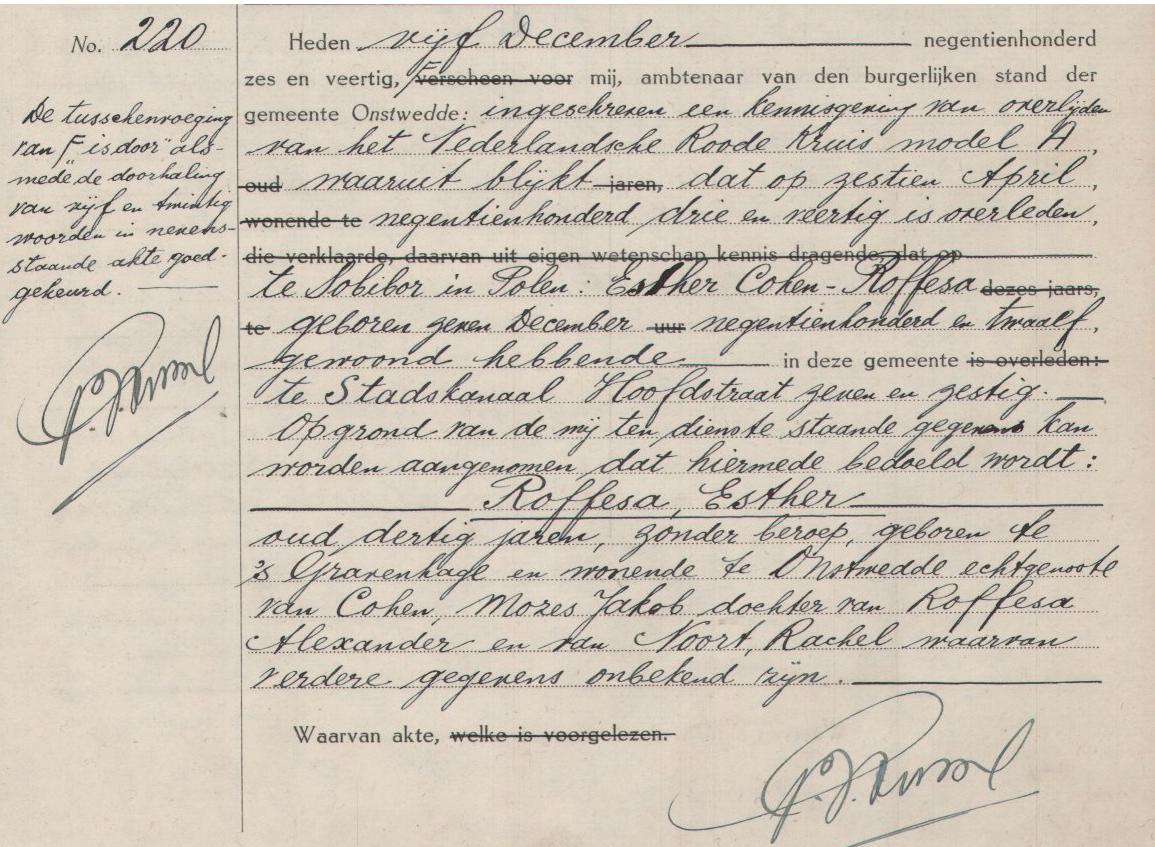 No. 220
De tusschenvoeging
van F is door" als-
mede de doorhaling
van vijf en twintig
woorden in nevens-
staande akte goed-
gekeurd.
Heden vijf December negentienhonderd
zes en veertig, F verscheen voor mij, ambtenaar van den burgerlijken stand der
gemeente Onstwedde: ingeschreven een kennisgeving van overlijden
van het Nederlandsche Roode Kruis model A,
oud waaruit blijkt jaren, dat op zestien April,
wonende te negentienhonderd drie en veertig is overleden,
die verklaarde, daarvan uit eigen wetenschap kennis dragende, dat op
te Sobibor in Polen: Esther Cohen-Roffesa dezes jaars,
te geboren zeven December uur negentienhonderd en twaalf,
gewoond hebbende in deze gemeente is overleden:
te Stadskanaal Hoofdstraat zeven en zestig.
Op grond van de mij ten dienste staande gegevens kan
worden aangenomen dat hiermede bedoeld wordt:
Roffesa, Esther
oud dertig jaren, zonder beroep, geboren te
's Gravenhage en wonende te Onstwedde echtgenoote
van Cohen, Mozes Jakob dochter van Roffesa
Alexander en van Noort, Rachel waarvan
verdere gegevens onbekend zijn.
Waarvan akte, welke is voorgelezen.